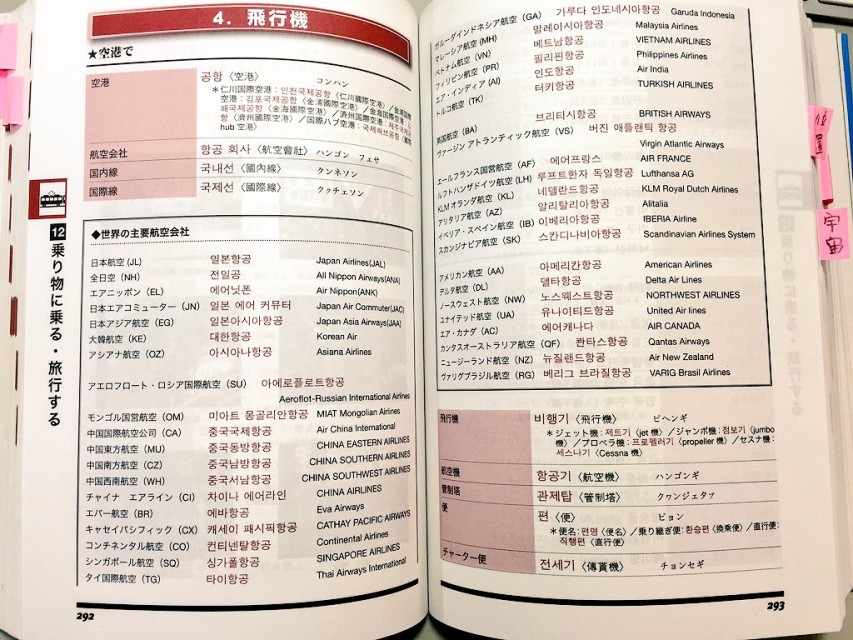 4. 飛行機
★空港で
空港 공항〈空港〉 コンハン
＊仁川国際空港：인천국제공항〈仁川國際空港〉／金浦国際
空港：김포국제공항〈金浦國際空港〉／金海国際空港：
해국제공항〈金海國際空港〉／済州国際空港：제주국제공
항〈濟州國際空港〉／国際ハブ空港：국제허브공항〈國際
hub 空港〉
航空会社 항공 회사〈航空會社〉 ハンゴン フェサ
国内線 국내선〈國內線〉 クンネソン
国際線 국제선〈國際線〉 ククチェソン
◆世界の主要航空会社
日本航空 (JL) 일본항공 Japan Airlines(JAL)
全日空（NH） 전일공 All Nippon Airways(ANA)
エアニッポン（EL） 에어닛폰 Air Nippon(ANK)
日本エアコミューター（JN） 일본 에어 커뮤터 Japan Air Commuter(JAC)
日本アジア航空（EG） 일본아시아항공 Japan Asia Airways(JAA)
大韓航空（KE） 대한항공 Korean Air
アシアナ航空（OZ） 아시아나항공 Asiana Airlines
アエロフロート・ロシア国際航空（SU） 아에로플로트항공
Aeroflot-Russian International Airlines
モンゴル国営航空（OM） 미아트 몽골리안항공 MIAT Mongolian Airlines
中国国際航空公司（CA） 중국국제항공 Air China International
中国東方航空（MU） 중국동방항공 CHINA EASTERN AIRLINES
中国南方航空（CZ） 중국남방항공 CHINA SOUTHERN AIRLINES
中国西南航空（WH） 중국서남항공 CHINA SOUTHWEST AIRLINES
チャイナ エアライン（CI） 차이나 에어라인 CHINA AIRLINES
エバー航空（BR） 에바항공 Eva Airways
キャセイパシフィック（CX） 캐세이 패시픽항공 CATHAY PACIFIC AIRWAYS
コンチネンタル航空（CO） 컨티넨탈항공 Continental Airlines
シンガポール航空（SQ） 싱가폴항공 SINGAPORE AIRLINES
タイ国際航空（TG） 타이항공 Thai Airways International
292
12 乗り物に乗る・旅行する
ガルーダインドネシア航空（GA） 가루다 인도네시아항공 Garuda Indonesia
マレーシア航空（MH） 말레이시아항공 Malaysia Airlines
ベトナム航空（VN） 베트남항공 VIETNAM AIRLINES
フィリピン航空（PR） 필리핀항공 Philippines Airlines
エア・インディア（AI） 인도항공 Air India
トルコ航空（TK） 터키항공 TURKISH AIRLINES
英国航空（BA） 브리티시항공 BRITISH AIRWAYS
ヴァージン アトランティック航空（VS） 버진 애플랜틱 항공
Virgin Atlantic Airways
エールフランス国営航空（AF） 에어프랑스 AIR FRANCE
ルフトハンザドイツ航空（LH） 루프트한자 독일항공 Lufthansa AG
KLMオランダ航空（KL） 네덜란드항공 KLM Royal Dutch Airlines
アリタリア航空（AZ） 알리탈리아항공 Alitalia
イベリア・スペイン航空（IB） 이베리아항공 IBERIA Airline
スカンジナビア航空（SK） 스칸디나비아항공 Scandinavian Airlines System
アメリカン航空（AA） 아메리칸항공 American Airlines
デルタ航空（DL） 델타항공 Delta Air Lines
ノースウェスト航空（NW） 노스웨스트항공 NORTHWEST AIRLINES
ユナイテッド航空（UA） 유나이티드항공 United Air lines
エア・カナダ（AC） 에어캐나다 AIR CANADA
カンタスオーストラリア航空（QF） 콴타스항공 Qantas Airways
ニュージーランド航空（NZ） 뉴질랜드항공 Air New Zealand
ヴァリグブラジル航空（RG） 베리그 브라질항공 VARIG Brasil Airlines
飛行機 비행기〈飛行機〉 ピヘンギ
＊ジェット機：제트기〈jet 機〉／ジャンボ機：점보기〈jumbo
機〉／プロペラ機：프로펠러기〈propeller 機〉／セスナ機：
세스나기〈Cessna 機〉
航空機 항공기〈航空機〉 ハンゴンギ
管制塔 관제탑〈管制塔〉 クァンジェタプ
便 편〈便〉 ピョン
＊便名：편명〈便名〉／乗り継ぎ便：환승편〈換乘便〉／直行便：
직행편〈直行便〉
チャーター便 전세기〈傳貰機〉 チョンセギ
293
宇宙